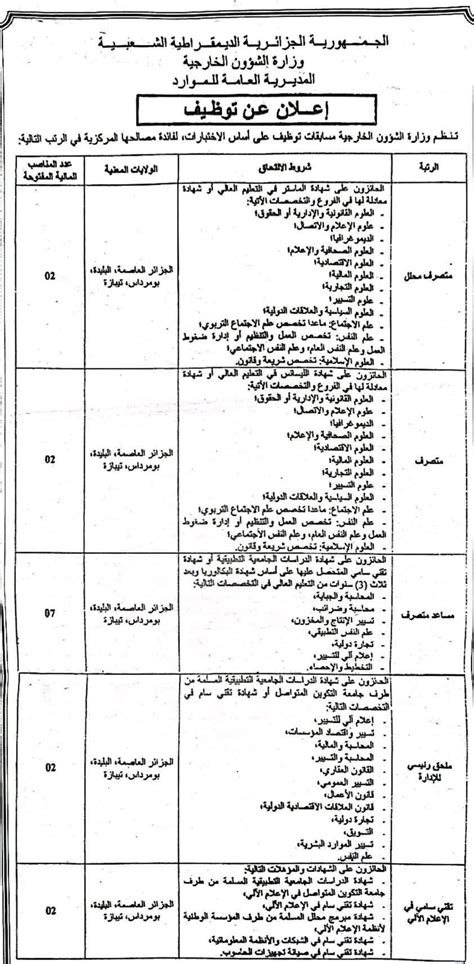 الجمهورية الجزائرية الديمقراطية الشعبية
وزارة الشؤون الخارجية
المديرية العامة للموارد
إعلان عن توظيف
تنظم وزارة الشؤون الخارجية مسابقات توظيف على أساس الاختبارات، لفائدة مصالحها المركزية في الرتب التالية:
الرتبة
شروط الالتحاق
الولايات المعنية
عدد المناصب
المالية المفتوحة
متصرف محلل
الحائزون على شهادة الماستر في التعليم العالي أو شهادة
معادلة لها في الفروع والتخصصات الآتية:
- العلوم القانونية والإدارية أو الحقوق؛
- علوم الإعلام والاتصال؛
- الديموغرافيا؛
- العلوم الصحافية والإعلام؛
- العلوم الاقتصادية؛
- العلوم المالية؛
- العلوم التجارية؛
- علوم التسيير؛
- العلوم السياسية والعلاقات الدولية؛
- علم الاجتماع: ماعدا تخصص علم الاجتماع التربوي؛
- علم النفس: تخصص العمل والتنظيم أو إدارة ضغوط
العمل وعلم النفس العام، وعلم النفس الاجتماعي؛
- العلوم الإسلامية: تخصص شريعة وقانون.
الجزائر العاصمة، البليدة،
بومرداس، تيبازة
02
متصرف
الحائزون على شهادة الليسانس في التعليم العالي أو شهادة
معادلة لها في الفروع والتخصصات الآتية:
- العلوم القانونية والإدارية أو الحقوق؛
- علوم الإعلام والاتصال؛
- الديموغرافيا؛
- العلوم الصحافية والإعلام؛
- العلوم الاقتصادية؛
- العلوم المالية؛
- العلوم التجارية؛
- علوم التسيير؛
- العلوم السياسية والعلاقات الدولية؛
- علم الاجتماع: ماعدا تخصص علم الاجتماع التربوي؛
- علم النفس: تخصص العمل والتنظيم أو إدارة ضغوط
العمل، وعلم النفس العام، وعلم النفس الاجتماعي؛
- العلوم الإسلامية: تخصص شريعة وقانون.
الجزائر العاصمة، البليدة،
بومرداس، تيبازة
02
مساعد متصرف
الحائزون على شهادة الدراسات الجامعية التطبيقية أو شهادة
تقني سامي المتحصل عليها على أساس شهادة البكالوريا وبعد
ثلاث (3) سنوات من التعليم العالي في التخصصات التالية:
- المحاسبة والجباية،
- محاسبة وضرائب،
- تسيير الإنتاج والمخزون،
- علم النفس التطبيقي،
- تجارة دولية،
- إعلام آلي للتسيير،
- التخطيط والإحصاء.
الجزائر العاصمة، البليدة،
بومرداس، تيبازة
07
ملحق رئيسي
للإدارة
الحائزون على شهادة الدراسات الجامعية التطبيقية المسلمة من
طرف جامعة التكوين المتواصل أو شهادة تقني سام في
التخصصات التالية:
- إعلام آلي للتسيير،
- تسيير واقتصاد المؤسسات،
- المحاسبة والمالية،
- المحاسبة والتسيير،
- القانون العقاري،
- التسيير العمومي،
- قانون الأعمال،
- قانون العلاقات الاقتصادية الدولية،
- تجارة دولية،
- التسويق،
- تسيير الموارد البشرية،
- علم النفس.
الجزائر العاصمة، البليدة،
بومرداس، تيبازة
02
تقني سامي في
الإعلام الآلي
الحائزون على الشهادات والمؤهلات التالية:
- شهادة الدراسات الجامعية التطبيقية المسلمة من طرف
جامعة التكوين المتواصل في الإعلام الآلي،
- شهادة تقني سام في الإعلام الآلي،
- شهادة مبرمج محلل المسلمة من طرف المؤسسة الوطنية
لأنظمة الإعلام الآلي،
- شهادة تقني سام في الشبكات والأنظمة المعلوماتية،
- شهادة تقني سام في صيانة تجهيزات الحاسوب.
الجزائر العاصمة، البليدة،
بومرداس، تيبازة
02